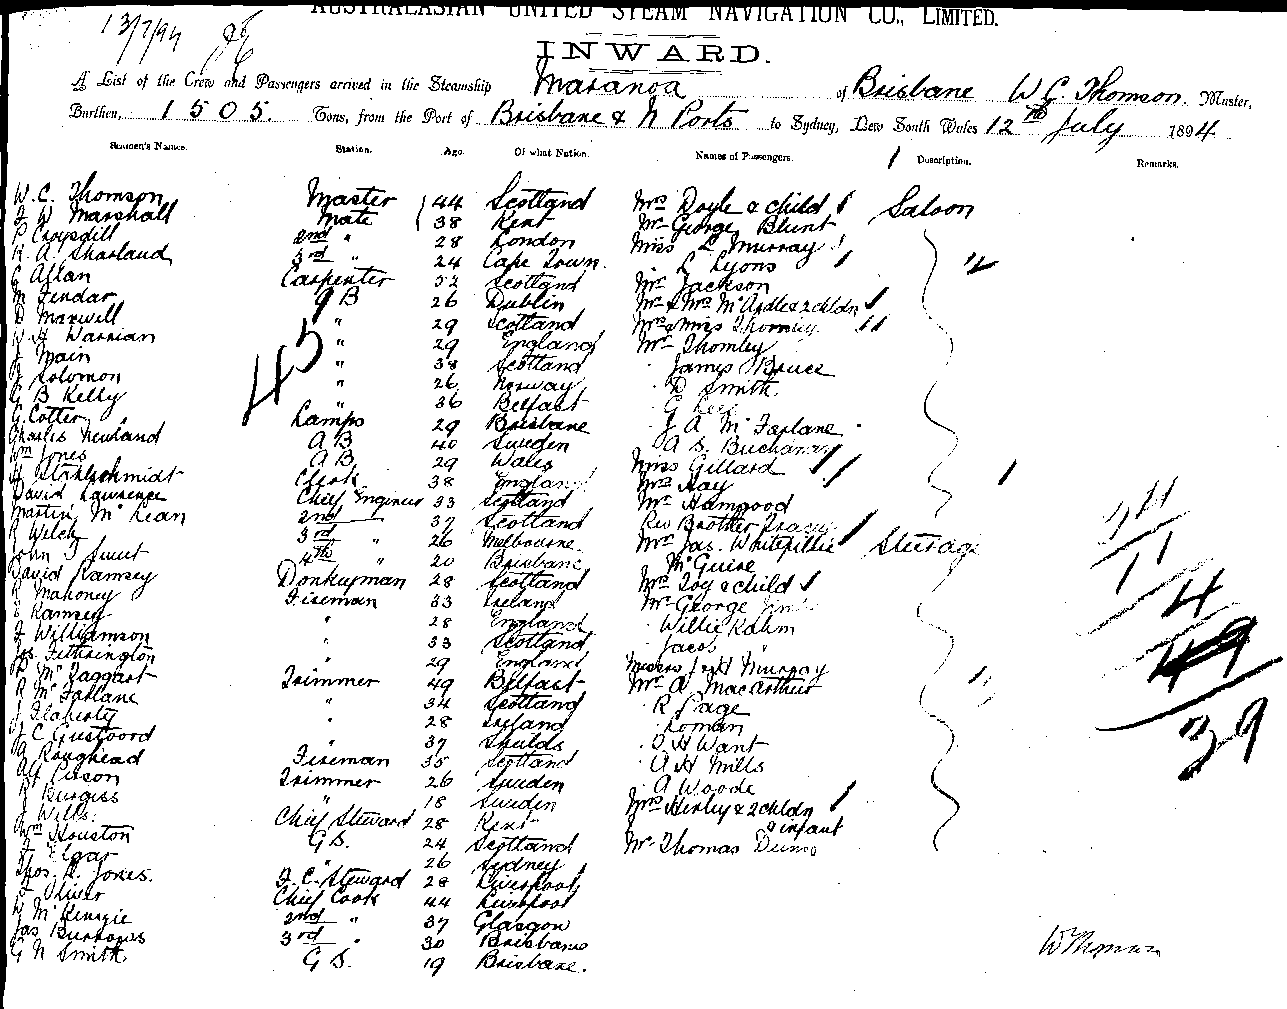 13/7/94
AUSTRALASIAN UNITED STEAM NAVIGATION CO., LIMITED.
INWARD.
A List of the Crew and Passengers arrived in the Steamship Maranoa of Brisbane W C Thomson. Master,
Burthen, 1505. Tons, from the Port of Brisbane & N Ports to Sydney, New South Wales 12th July 1894.
Seamen's Names. Station. Age. Of what Nation. Names of Passengers. Description. Remarks.
W. C. Thomson Master 44 Scotland Mrs Doyle & child Saloon
F W Marshall Mate 38 Kent Mr George Blunt
P Croysdill 2nd " 28 London Miss L Murray
R. A. Sharland 3rd " 24 Cape Town. L Lyons
G Allan Carpenter 52 Scotland Mr Jackson
M Fendar A B 26 Dublin Mr & Mrs McArdle & 2 chldn
D Maxwell " 29 Scotland Mrs & Miss Thornley
Harrian " 29 England Mr Thornley
J Main " 38 Scotland James Bruce
J Solomon " 26 Norway D Smith
G B Kelly " 36 Belfast G Lee
G Cotter Lamps 29 Brisbane J A McFarlane
Charles Newland A B 40 Sweden A S. Buchanan
Wm Jones A B 29 Wales Miss Gillard
Clerk 38 England Mrs Hay
David Lawrence Chief Engineer 33 Scotland Mr Hamgood
Martin McLean 2nd 37 Scotland Rev Brother
R Welch 3rd " 26 Melbourne Mrs Jas. Steerage
John J Sweet 4th " 20 Brisbane McGuire
David Ramsey Donkeyman 28 Scotland Mrs Toy & child
R Mahoney Fireman 33 Ireland Mr George
Ramsey " 28 England Willie Rahm
F Williamson " 33 Scotland Jacob "
Jos. Fetherington " 29 England Messrs J & H Murray
McTaggart Trimmer 49 Belfast Mr A MacArthur
R McFarlane " 34 Scotland R Page
J Flaherty " 28 Ireland Loman
J C Gustvord " 37 Shields D H Want
A Roughead Fireman 35 Scotland A H Mills
Trimmer 26 Sweden A Woode
R Burgiss " 18 Sweden Mrs Henley & 2 chldn
J Wills. Chief Steward 28 Kent & infant
Wm Houston G S. 24 Scotland Mr Thomas Dunn
Elgar " 26 Sydney
Thos. H. Jones. F. C. Steward 28 Liverpool
Oliver Chief Cook 44 Liverpool
McKenzie 2nd " 37 Glasgow
Jas Burrows 3rd " 30 Brisbane
G N Smith G S. 19 Brisbane.
45
11
4
49
39